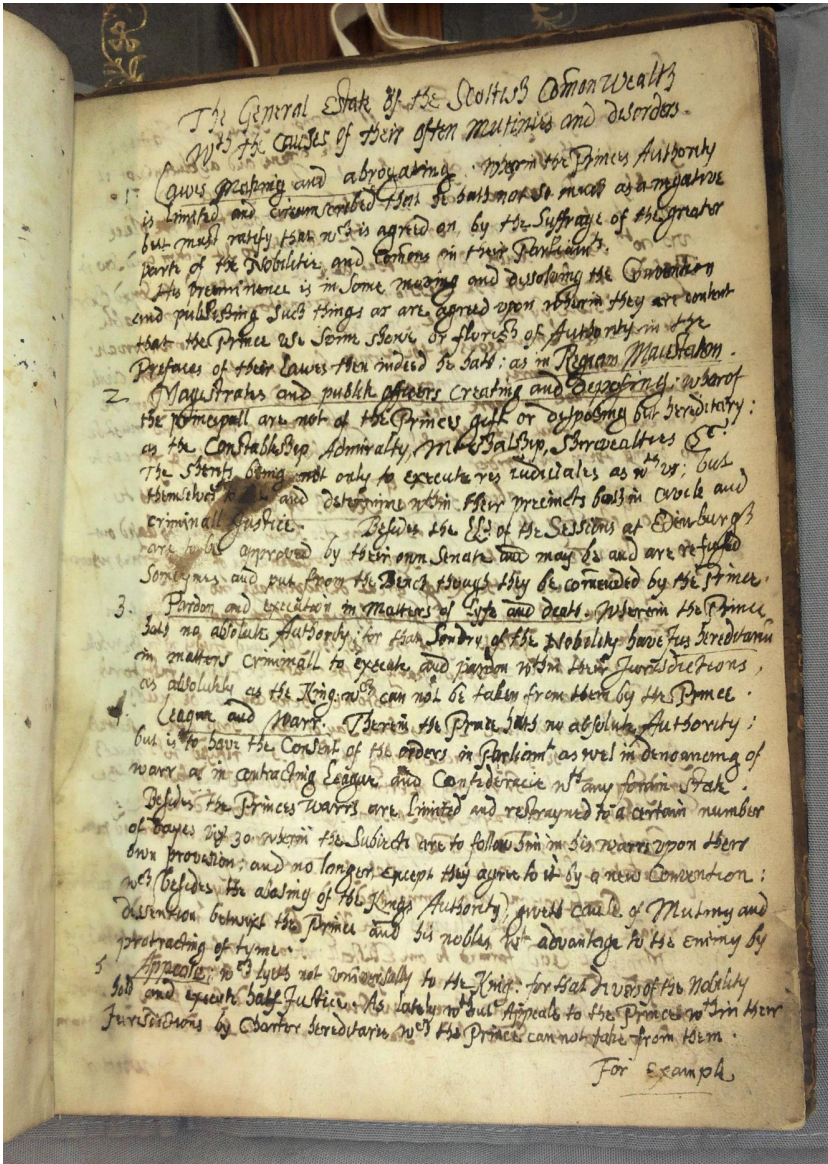 The General Estate of the Scottish Comon Wealth
Wth the Causes of their often Mutinies and disorders.
1. Lawes making and abrogating. Wherin the Princes Authority
is limited and circumscribed that he hath not so much as a negative
but must ratify that wch is agreed on, by the Suffrage of the greater
parte of the Nobilitie and Comons in their Parliamt.
His preeminence is in Some moving and dissolving the Convention
and publishing Such things as are agreed upon wherin they are content
that the Prince Use Some shewe or florish of Authority in the
Prefaces of their Lawes then indeed he hath: as in Regiam Maiestatem.
2. Magistrates and publik officers Creating and Deposing: wharof
the principall are not of the Princes guift or disposing but hereditary:
as the Constableship Admiralty, Marshalship, Sherevealties &c:
The Sherifs being not only to execute res iudiciales as wth us; but
themselves and determine wthin their precincts both in Civile and
criminall Justice. Besides the LLs of the Sessions at Edenburgh
are to be approved by their own Senate and may be and are refused
Somtymes and put from the Bench though they be comended by the Prince.
3. Pardon and execution in Matters of Lyfe and death. Wherein the Prince
hath no absolute Authority; for that Sondry of the Nobility have Jus hereditariu
in matters Criminall to execute and pardon wthin their Jurisdictions,
as absolutely as the King: wch can not be taken from them by the Prince.
4. League and Warr. Therein the Prince hath no absolute Authority;
but is to have the Consent of the orders in Parliamt as wel in denouncing of
warr as in contracting League and Confideracie wth any forein State.
Besides the Princes Warrs are limited and restrayned to a certain number
of dayes viz 30 wherin the Subiects are to follow him in his warrs upon their
own provision; and no longer except they agree to it by a new Convention:
wch besides the abasing of the Kings Authority, giveth cause of Mutiny and
dissention betwixt the Prince and his nobles wth advantage to the enemy by
protracting of tyme.
5 Appeale; wch lyeth not universally to the King: for that divers of the Nobility
hold and execute Justice. As lately wthout Appeale to the Princes wthin their
Jurisdictions by Charter hereditarie wch the Prince cannot take from them.
For example